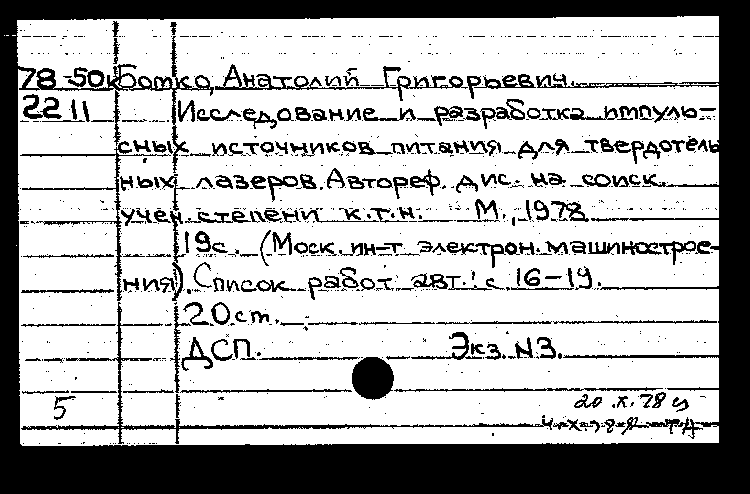 78-50к Ботко, Анатолий Григорьевич.
22 11 Исследование и разработка импуль-
сных источников питания для твердотель
ных лазеров. Автореф. дис. на соиск.
учен. степени к.т.н. М., 1978
19с. (Моск. ин-т электрон. машинострое-
ния). Список работ авт.: с 16-19.
20 см.
ДСП. Экз. N3.
5 20.X.78